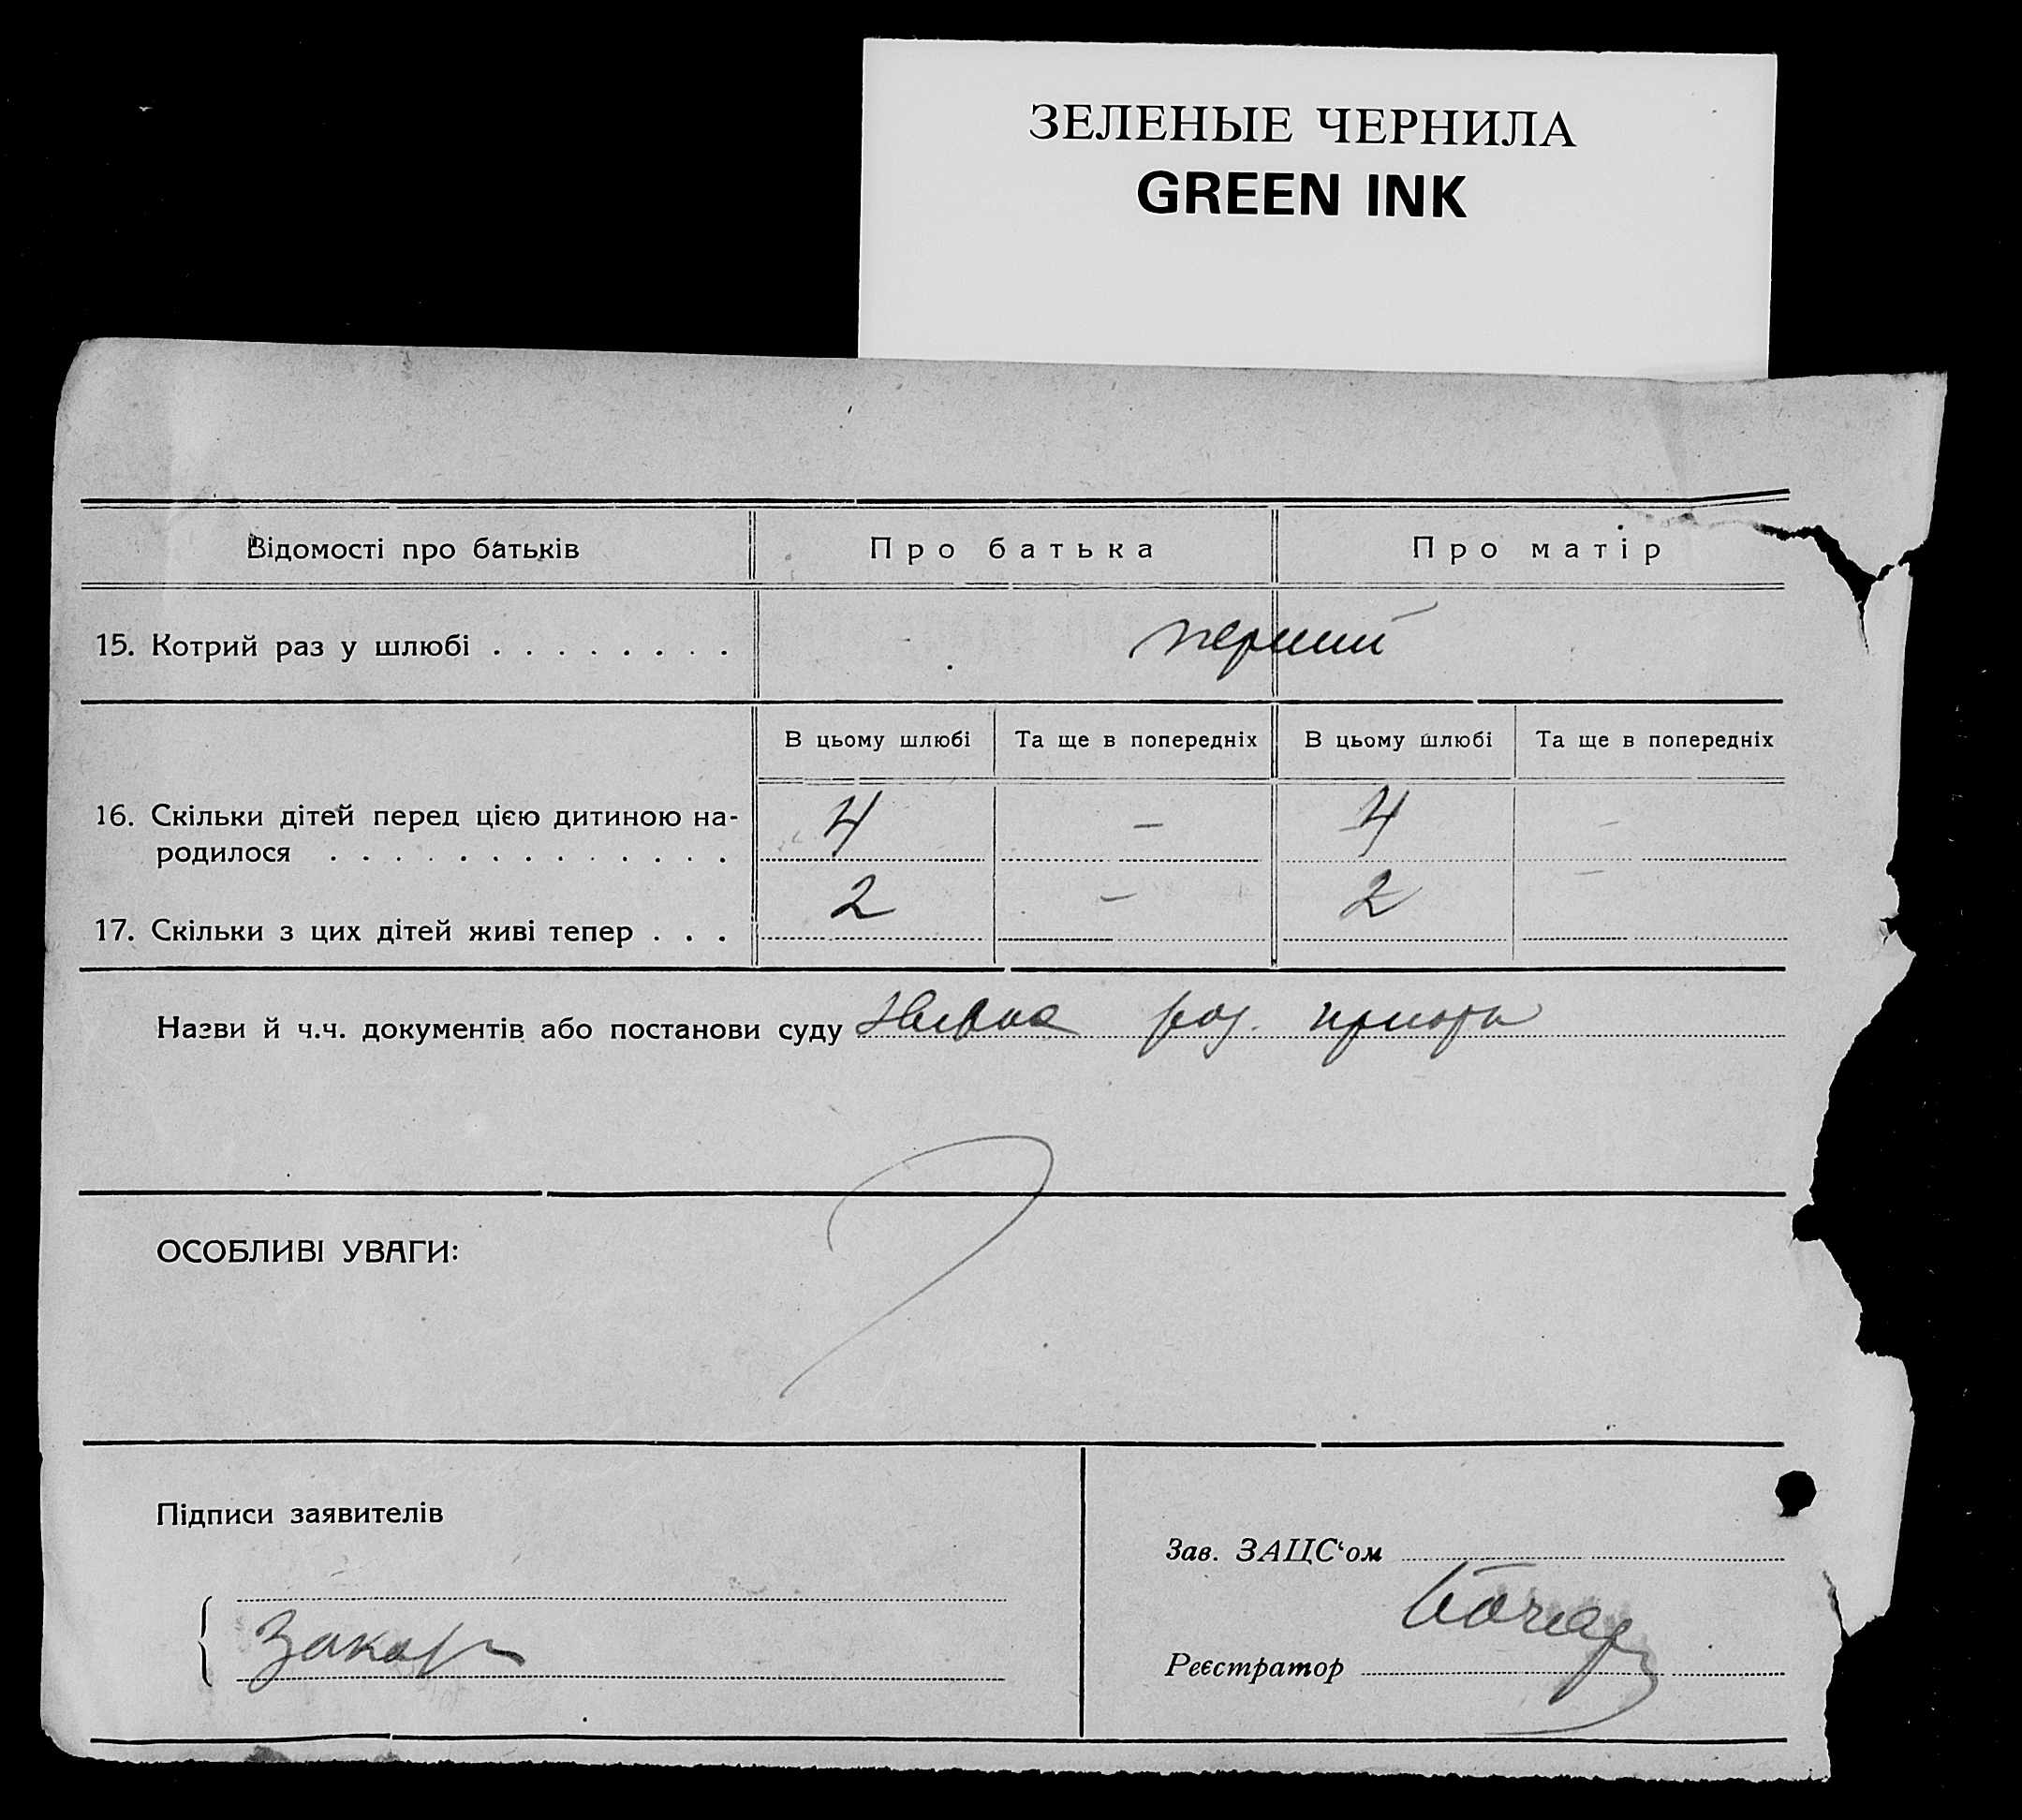 ЗЕЛЕНЫЕ ЧЕРНИЛА
GREEN INK
Відомості про батьків Про батька Про матір
15. Котрий раз у шлюбі . . . . . . . . перший
В цьому шлюбі Та ще в попередніх В цьому шлюбі Та ще в попередніх
16. Скільки дітей перед цією дитиною на-
родилося . . . . . . . . . . . . . 4 — 4 —
17. Скільки з цих дітей живі тепер . . . 2 — 2 —
Назви й ч.ч. документів або постанови суду
ОСОБЛИВІ УВАГИ:
Підписи заявителів
Зав. ЗАЦС‘ом
Закор
Реєстратор